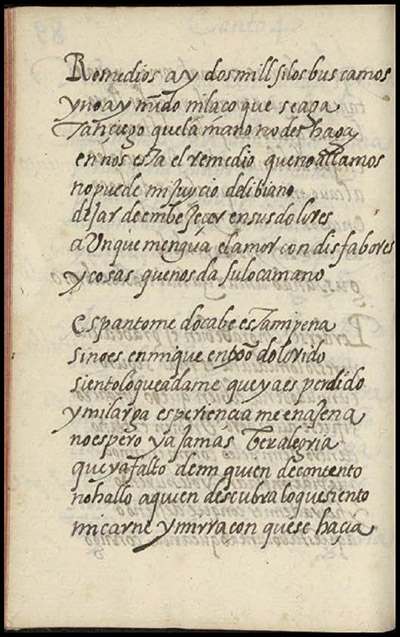 Remedios ay dos mill si los buscamos
y no ay nudo ni laço que se aga
tan ciego que la mano no desaga
en nos esta el remedio que no allamos
no puede mi juycio de libiano
dejar de embejecer en sus dolores
aunque mengua el amor con disfabores
y cosas que nos da su loca mano
espantome do cabe esta mi pena
sino es en mi que en todo dolorido
siento lo que adame que ya es perdido
y mi larga esperiencia me enajena
no espero ya jamas ter alegria
que ya falto de mi quien de contento
no hallo a quien descubra lo que siento
mi carne y mirra con que se hacia